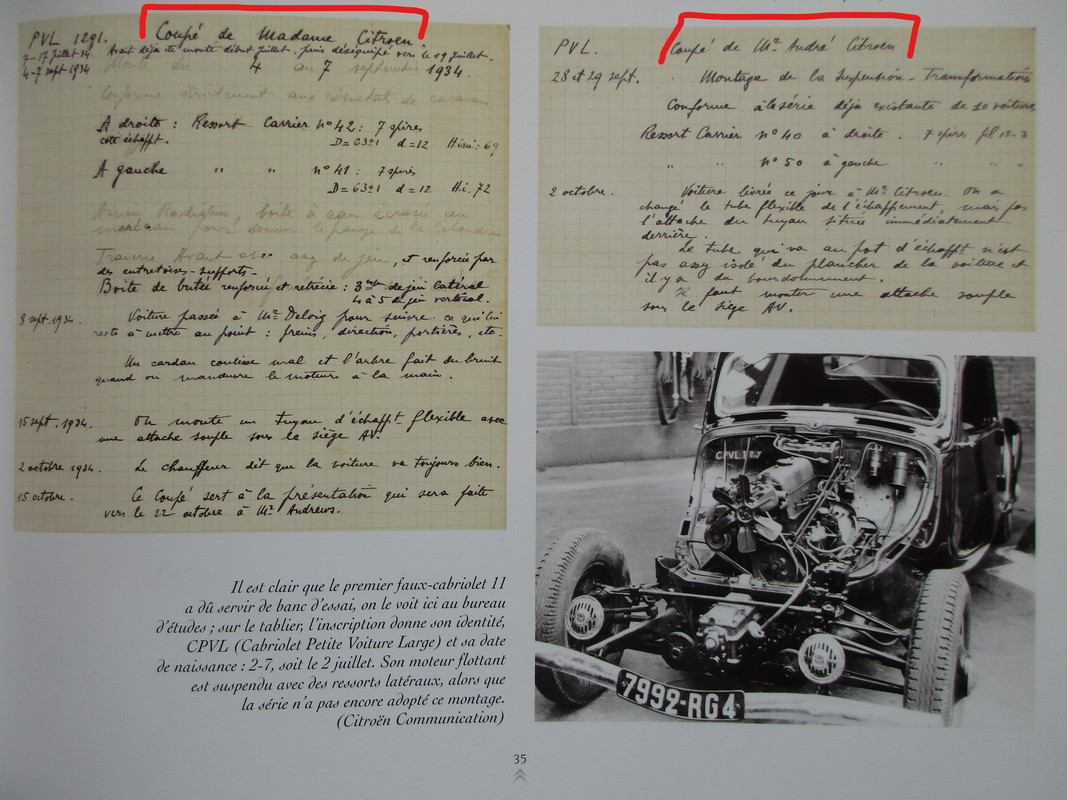 PVL 1291. Coupé de Madame Citroen.
7-17 Juillet 34. Avait déjà été monté début Juillet, puis déséquipé vers le 19 Juillet.
4-7 sept 1934 Monté du 4 au 7 septembre 1934.
Conforme strictement aux résultats de
A droite : Ressort Carrier n° 42 : 7 spires
coté échapft. D = 63±1 d = 12 Hi : 69
A gauche " " n° 41 : 7 spires
D = 63±1 d = 12 Hi. 72
Ancien Radiateur, boite à eau
marteau pour donner le passage de la Calandre
Traverse Avant avec de jeu, et renforcée par
des entretoises-supports.
Boite de butée renforcée et rétrécie : 3 de jeu latéral
4 à 5 de jeu vertical.
8 sept. 1934. Voiture passée à Mr pour suivre ce qui lui
reste à mettre au point : freins, direction, portières, etc.
Un cardan coulisse mal et l'arbre fait du bruit
quand on manœuvre le moteur à la main.
15 sept. 1934. On monte un Tuyau d'échaft flexible avec
une attache souple sous le siège AV.
2 octobre 1934. Le chauffeur dit que la voiture va toujours bien.
15 octobre. Ce Coupé sert à la présentation qui sera faite
vers le 22 octobre à Mr Andrews.
PVL. Coupé de Mr André Citroen
28 et 29 sept. Montage de la Suspension - Transformations
Conforme à la série déjà existante de 10 voitures
Ressort Carrier n° 40 à droite. 7 spires
" " n° 50 à gauche " "
2 octobre. Voiture livrée ce jour à Mr Citroen. On a
changé le tube flexible de l'échappement, mais pas
l'attache du tuyau située immédiatement
derrière.
Le tube qui va au pot d'échapft n'est
pas assez isolé du plancher de la voiture et
il y a du bourdonnement.
Il faut monter une attache souple
sous le siège AV.
CPVL 2-7
7992-RG4
Il est clair que le premier faux-cabriolet 11
a dû servir de banc d'essai, on le voit ici au bureau
d'études ; sur le tablier, l'inscription donne son identité,
CPVL (Cabriolet Petite Voiture Large) et sa date
de naissance : 2-7, soit le 2 juillet. Son moteur flottant
est suspendu avec des ressorts latéraux, alors que
la série n'a pas encore adopté ce montage.
(Citroën Communication)
35